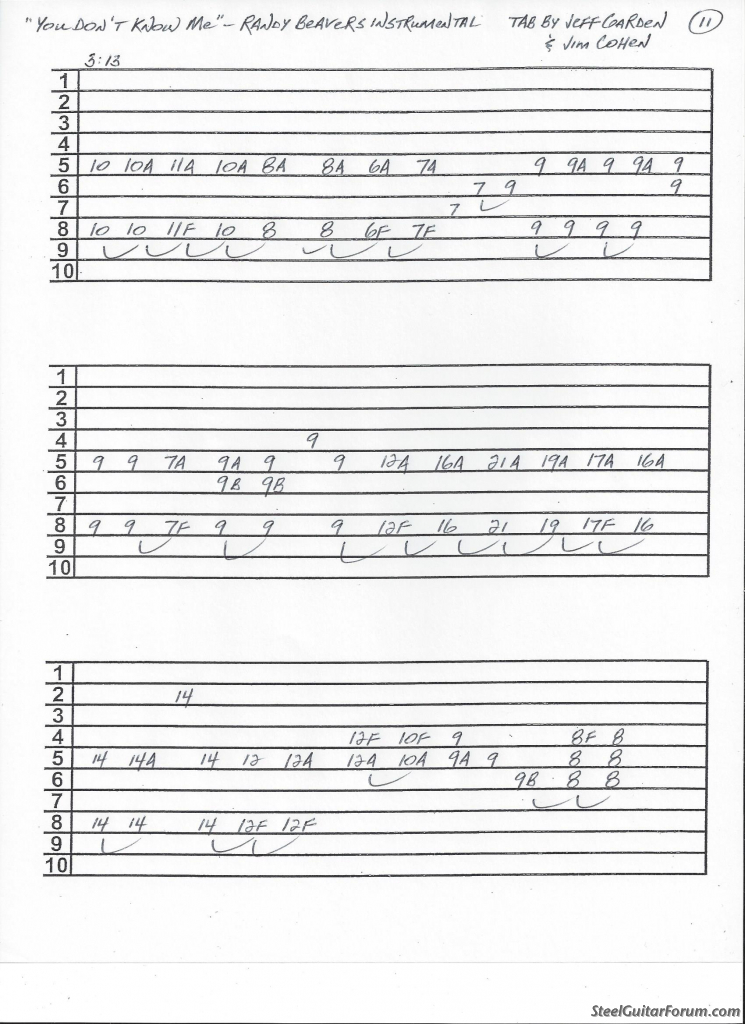 "YOU DON'T KNOW ME" – RANDY BEAVERS INSTRUMENTAL TAB BY JEFF GARDEN 11
& JIM COHEN
3:13
1
2
3
4
5 10 10A 11A 10A 8A 8A 6A 7A 9 9A 9 9A 9
6 7 9 9
7 7
8 10 10 11F 10 8 8 6F 7F 9 9 9 9
9
10
1
2
3
4 9
5 9 9 7A 9A 9 9 12A 16A 21A 19A 17A 16A
6 9B 9B
7
8 9 9 7F 9 9 9 12F 16 21 19 17F 16
9
10
1
2 14
3
4 12F 10F 9 8F 8
5 14 14A 14 12 12A 12A 10A 9A 9 8 8
6 9B 8 8
7
8 14 14 14 12F 12F
9
10
SteelGuitarForum.com